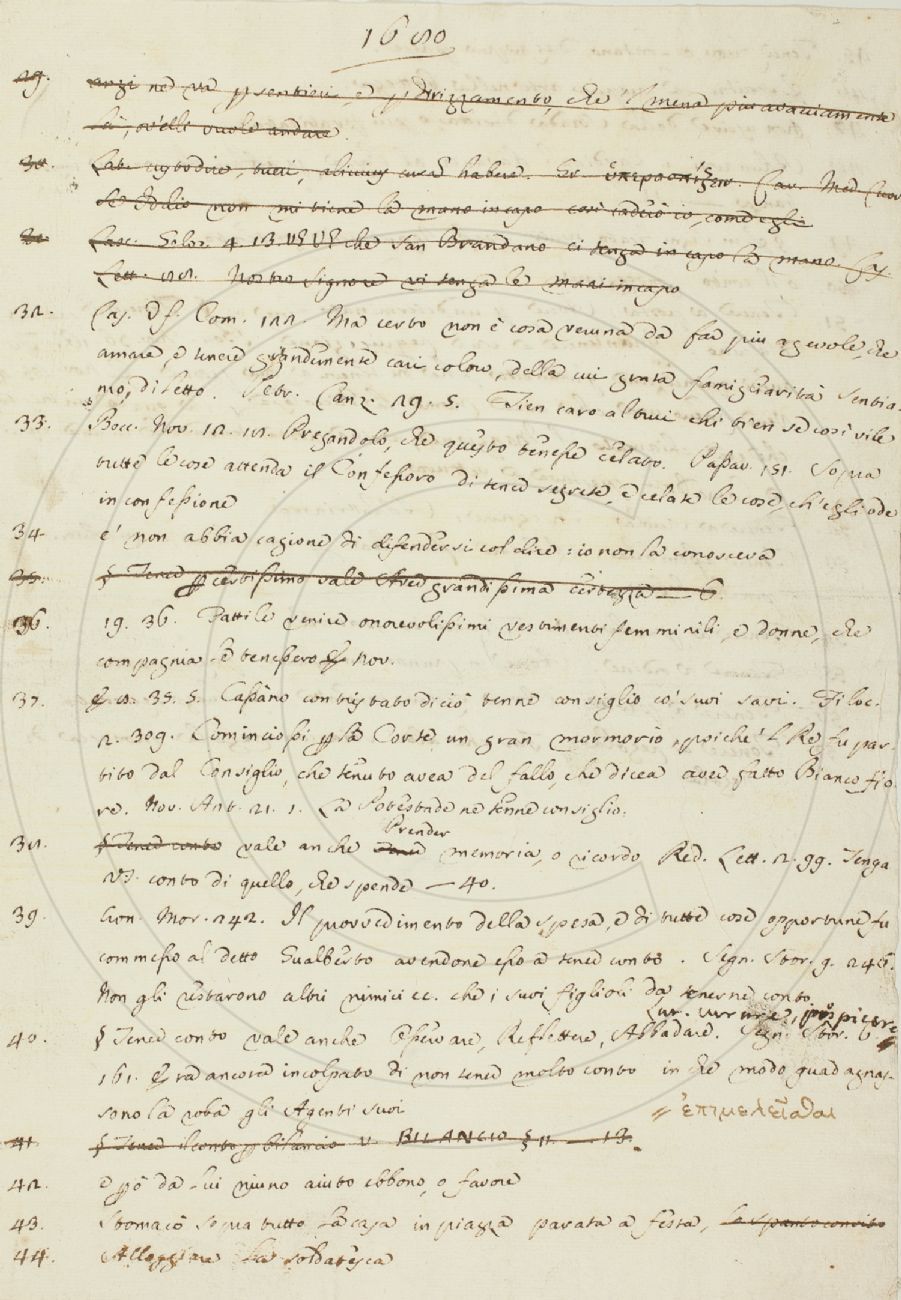 1680
29. anzi ne va per sentieri, e per dirizzamento, che 'l mena più avacciamente
là, ov'elli vuole andare
30. Lat. custodire, tueri, alicuius curam habere. Gr. ὑπερασπίζειν. Car. Med. Cuor.
Se Iddio non mi tiene la mano in capo così caderò io, come egli
31. Lasc. Gelos. 4. 13. che San Brandano ci tenga in capo la mano. Cas.
Lett. Nostro Signore vi tenga le mani in capo
32. Cas. Uf. Com. 122. Ma certo non è cosa veruna da far più agevole, che
amare, e tenere grandemente cari coloro, della cui grata famigliarità sentia-
mo, diletto. Petr. Canz. 29. 5. Tien caro altrui chi tien se così vile
33. Bocc. Nov. 12. 18. Pregandolo, che questo tenesse celato. Passav. 151. Sopra
tutte le cose attenda il Confessoro di tener segrete, e celate le cose, ch'egli ode
in confessione
34 e' non abbia cagione di difendersi col dire: io non la conosceva
35. § Tener per certissimo vale Aver grandissima certezza — 6
36. 19. 36. Fattile venire onorevolissimi vestimenti femminili, e donne, che
compagnia le tenessero Nov.
37. 35. 5. Cassano contristato di ciò tenne consiglio co' suoi savi. Filoc.
2. 309. Cominciossi per la Corte un gran mormorio, poiche 'l Re fu par-
tito dal Consiglio, che tenuto avea del fallo, che dicea aver fatto Biancofio-
re. Nov. Ant. 21. 1. La Potestade ne tenne consiglio.
Prender
38. § Tener conto vale anche Tener memoria, o ricordo Red. Lett. 2. 99. Tenga
VS. conto di quello, che spende — 40.
39. Cron. Mor. 242. Il provvedimento della spesa, e di tutte cose opportune fu
commesso al detto Gualberto avendone esso a tener conto. Segn. Stor. 9. 246.
Non gli restarono altri nimici ec. che i suoi figlioli da tenerne conto
Lat. curare, prospicere
40. § Tener conto vale anche Osservare, Riflettere, Abbadare. Segn. Stor. 6
161. Era ancora incolpato di non tener molto conto in che modo guadagnas-
sono la roba gli Agenti suoi
ἐπιμελεῖσθαι
41. § Tener il conto per bilancio v. BILANCIO § 11. — 13.
42. e però da lui niuno aiuto ebbono, o favore
43. Stomacò sopra tutto la casa in piazza parata a festa, lo spanto convito
44. Alloggiare la soldatesca